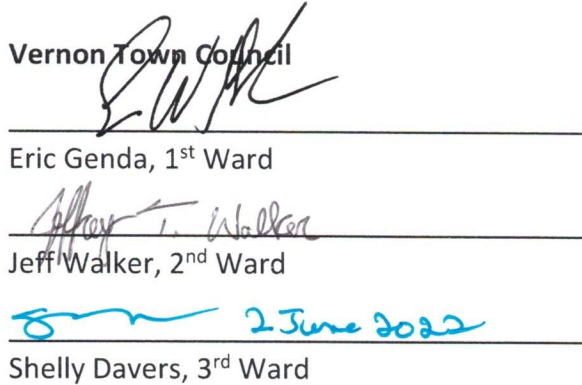 Vernon Town Council
Eric Genda, 1st Ward
Jeffrey T. Walker
Jeff Walker, 2nd Ward
2 June 2022
Shelly Davers, 3rd Ward